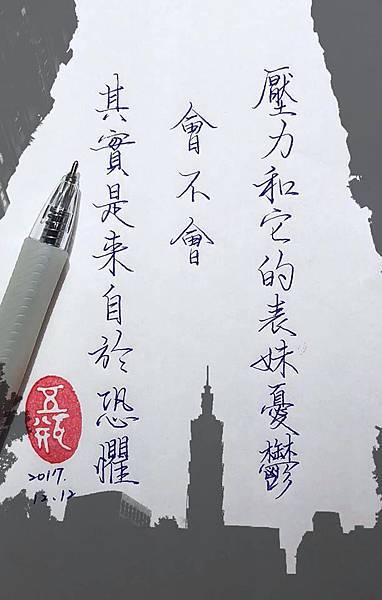 壓力和它的表妹憂鬱
會不會
其實是来自於恐懼
2017.
12.12